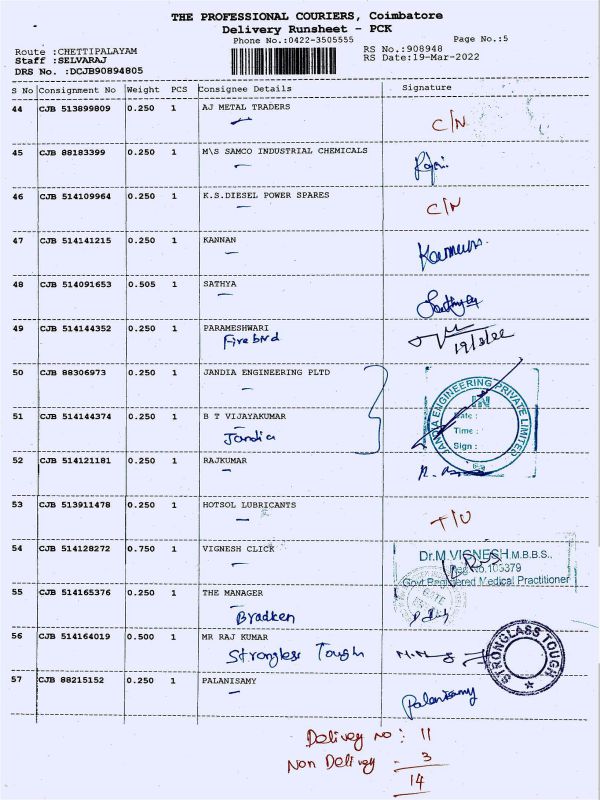 THE PROFESSIONAL COURIERS, Coimbatore
Delivery Runsheet - PCK
Phone No.:0422-3505555
Page No.:5
Route :CHETTIPALAYAM
RS No.:908948
Staff :SELVARAJ
RS Date:19-Mar-2022
DRS No. :DCJB90894805
S No Consignment No Weight PCS Consignee Details Signature
44 CJB 513899809 0.250 1 AJ METAL TRADERS
C/N
45 CJB 88183399 0.250 1 M\S SAMCO INDUSTRIAL CHEMICALS
46 CJB 514109964 0.250 1 K.S.DIESEL POWER SPARES
C/N
47 CJB 514141215 0.250 1 KANNAN
48 CJB 514091653 0.505 1 SATHYA
49 CJB 514144352 0.250 1 PARAMESHWARI
Firebird
19/3/22
50 CJB 88306973 0.250 1 JANDIA ENGINEERING PLTD
JANDIA ENGINEERING PRIVATE LIMITED
51 CJB 514144374 0.250 1 B T VIJAYAKUMAR
Date :
Jandia
Time :
Sign :
52 CJB 514121181 0.250 1 RAJKUMAR
53 CJB 513911478 0.250 1 HOTSOL LUBRICANTS
T/U
54 CJB 514128272 0.750 1 VIGNESH CLICK
Dr.M.VIGNESH,M.B.B.S.,
Reg No.103379
Govt Registered Medical Practitioner
55 CJB 514165376 0.250 1 THE MANAGER
Bradken
56 CJB 514164019 0.500 1 MR RAJ KUMAR
Strongless Tough
STRONGLASS TOUGH
57 CJB 88215152 0.250 1 PALANISAMY
Palanisamy
Delivey no : 11
Non Delivey - 3
14